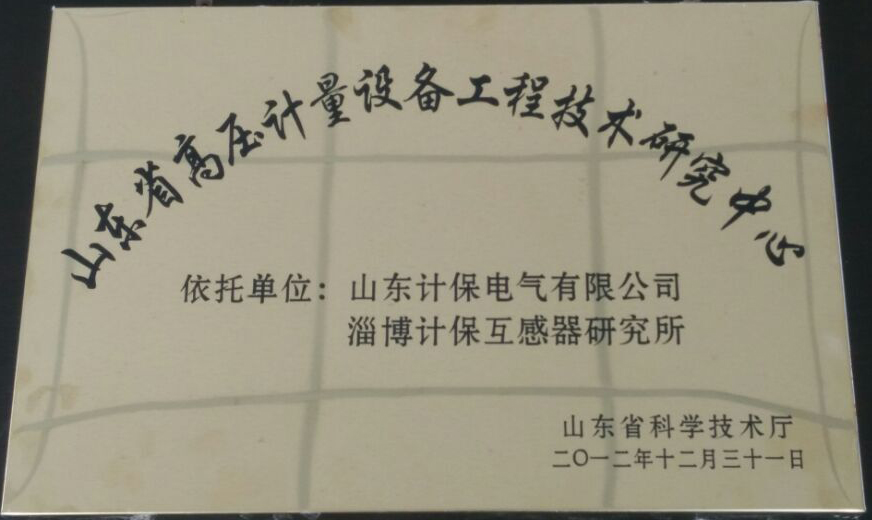 山东省高压计量设备工程技术研究中心
依托单位：山东计保电气有限公司
淄博计保互感器研究所
山东省科学技术厅
二〇一二年十二月三十一日